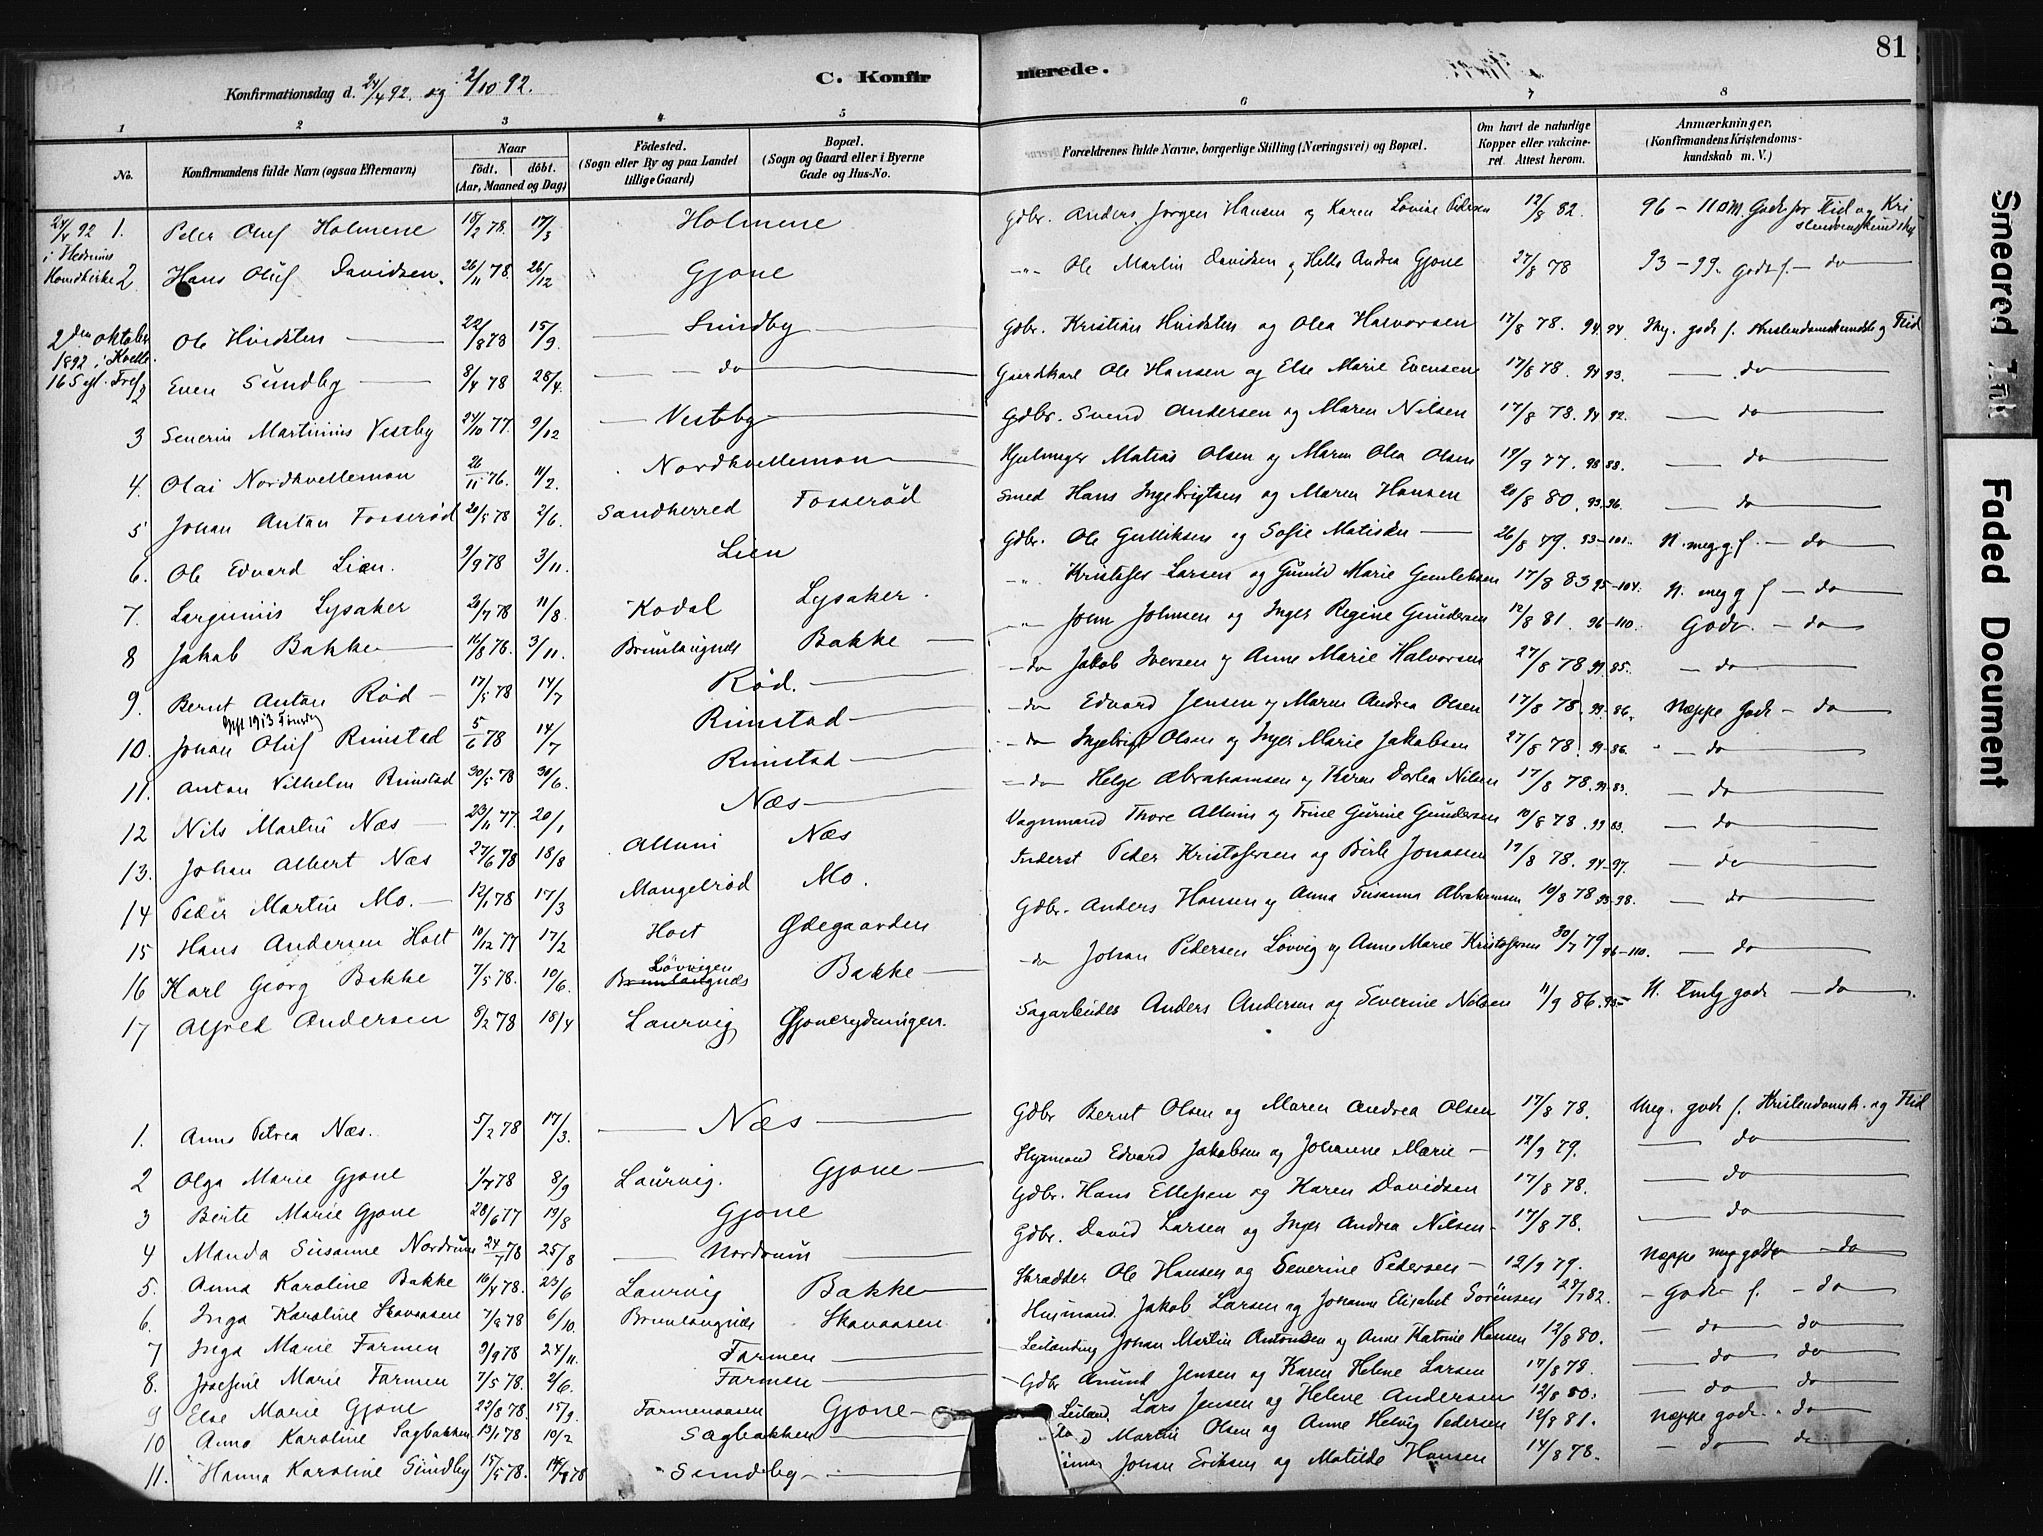 81
C. Konfirmerede.
Konfirmationsdag d. 24/4 92. og 2/10 92.
1 2 3 4 5 6 7 8
No.
Konfirmandens fulde Navn (ogsaa Efternavn)
Naar
født. døbt.
(Aar, Maaned og Dag)
Fødested.
(Sogn eller By og paa Landet
tillige Gaard)
Bopæl.
(Sogn og Gaard eller i Byerne
Gade og Hus-No.
Forældrenes fulde Navne, borgerlige Stilling (Næringsvei) og Bopæl.
Om havt de naturlige
Kopper eller vakcine-
ret. Attest herom.
Anmærkninger,
(Konfirmandens Kristendoms-
kundskab m. V.)
24/4 92 1. Peter Oluf Holmene 15/2 78. 17/3 Holmene Gdbr. Anders Jørgen Hansen og Karen Lovise Pedersen 12/8 82.
2 Hans Oluf Davidsen. 26/11 78 26/12 Gjone Ole Martin Davidsen og Helle Andrea Gjone 27/8 78 93-99. godt f. - do
2den oktober 1892 i Kvelle.
Ole Hvidsten 22/8 78 15/9. Sundby Gdbr. Kristian Hvidsten og Olea Halvorsen 17/8 78. 94 94. Meg. godt f. Kristendomskundsk og Flid
2 Even Sundby 8/4 78 28/4. do Gaardkarl Ole Hansen og Else Marie Evensen 17/8 78. 94 93. do
3 Severin Martinius Vestby 24/10 77. 9/12 Vestby Gdbr. Svend Andersen og Maren Nilsen 17/8 78. 94 92. do
4. Olai Nordkvelleman 26/11 76. 11/2. Nordkvelleman Hjulmager Matias Olsen og Maren Olea Olsen 19/9 77. 98 88. do
5 Johan Anton Fosserød 20/5 78 2/6. Sandherred Fosserød Smed Hans Ingebrigtsen og Maren Hansen 20/8 80. 93. 96. do
6. Ole Edvard Lien. 9/9 78 3/11. Lien Gdbr. Ole Gulliksen og Sofie 26/8 79. 93-101. N. meg. g. f. - do
7. Larginius Lysaker 20/7 78 11/8 Kodal Lysaker. Kristofer Larsen og Gunild Marie 17/8 83 95-104. N. meg g f - do
8 Jakob Bakke 16/8 78. 3/11. Brunlangnæs Bakke John Johnsen og Inger Regine Gundersen 12/8 81. 96-110. Godt - do
9. Bernt Anton Rød 17/5 78 14/7 Rød. do Jakob Iversen og Anne Marie Halvorsen 27/8 78 99. 85. do
10. Johan Oluf Rimstad 5/6 78 14/7 Rimstad do Edvard Jensen og Maren Andrea Olsen 17/8 78. 99. 86. Næppe Godt - do
11. Anton Vilhelm Rimstad 30/5 78 30/6. Rimstad do Ingebrigt Olsen og Inger Marie Jakobsen 27/8 78. 99-86. do
12 Nils Martin Næs 23/11 77. 20/1 Næs do Helge Abrahamsen og Karen Dorlea Nilsen 17/8 78. 99. 83. do
13. Johan Albert Næs 27/6 78 18/8 Allum Næs Vognmand Thore Allum og Trine Gurine Gundersen 10/8 78. 99 83. do
14 Peder Martin Mo. 12/1 78 17/3 Mangelrød Mo. Inderst Peder Kristofersen og Birte Jonassen 19/8 78. 94-97. do
15 Hans Andersen Holt 10/12 77 17/2 Holt Ødegaarden Gdbr. Anders Hansen og Anna Susanna Abrahamsen 10/8 78 93-98. do
16 Karl Georg Bakke 7/5 78. 10/6. Løvvigen Brunlangnæs Bakke do Johan Pedersen Løvvig og Anne Marie Kristofersen 30/7 79 96-110. do
17 Alfred Andersen 9/2 78 18/4 Laurvig Gjonerydningen. Sagarbeider Anders Andersen og Severine Nilsen 11/9 86. 93- N. Temlg godt - do
1. Anne Petrea Næs. 5/2 78 17/3. Næs Gdbr Bernt Olsen og Maren Andrea Olsen 17/8 78. Meg. godt f. Kristendomsk. og Flid
2 Olga Marie Gjone 1/7 78 8/9 Laurvig. Gjone Edvard Jakobsen og Johanne Marie 12/9 79. do
3 Birte Marie Gjone 28/6 77 19/8 Gjone Gdbr. Hans Ellefsen og Karen Davidsen 17/8 78. do
4 Manda Susanne Nordrum 24/7 78 25/8 Nordrum Gdbr. David Larsen og Inger Andrea Nilsen 17/8 78. do
5. Anna Karoline Bakke 16/4 78. 23/6 Laurvig Bakke Skrædder Ole Hansen og Severine Pedersen 12/9 79. Næppe meg godt - do
6. Inga Karoline Skavaasen 7/9 78 6/10. Brunlangnæs Skavaasen Husmand Jakob Larsen og Johanne Elisabet Sørensen 27/7 82. Godt f. - do
7 Inga Marie Farmen 9/9 78 24/11. Farmen Leilænding Johan Martin Antonsen og Anne Katrine Hansen 12/8 80. do do
8. Josefine Marie Farmen 7/5 78. 2/6. Farmen Gdbr Amund Jensen og Karen Helene Larsen 17/8 78. do do
9 Else Marie Gjone 22/8 78. 15/9. Farmenaasen Gjone Leiland. Lars Jensen og Helene Andersen 12/8 80. do do
10 Anna Karoline Sagbakken 19/1 78 10/2 Sagbakken Martin Olsen og Anne Helvig Pedersen 12/8 81. Næppe godt - do
11. Hanna Karoline Sundby 15/5 78. Sundby Johan Eriksen og Matilde Hansen 14/8 78. do do
Smeared Ink
Faded Document